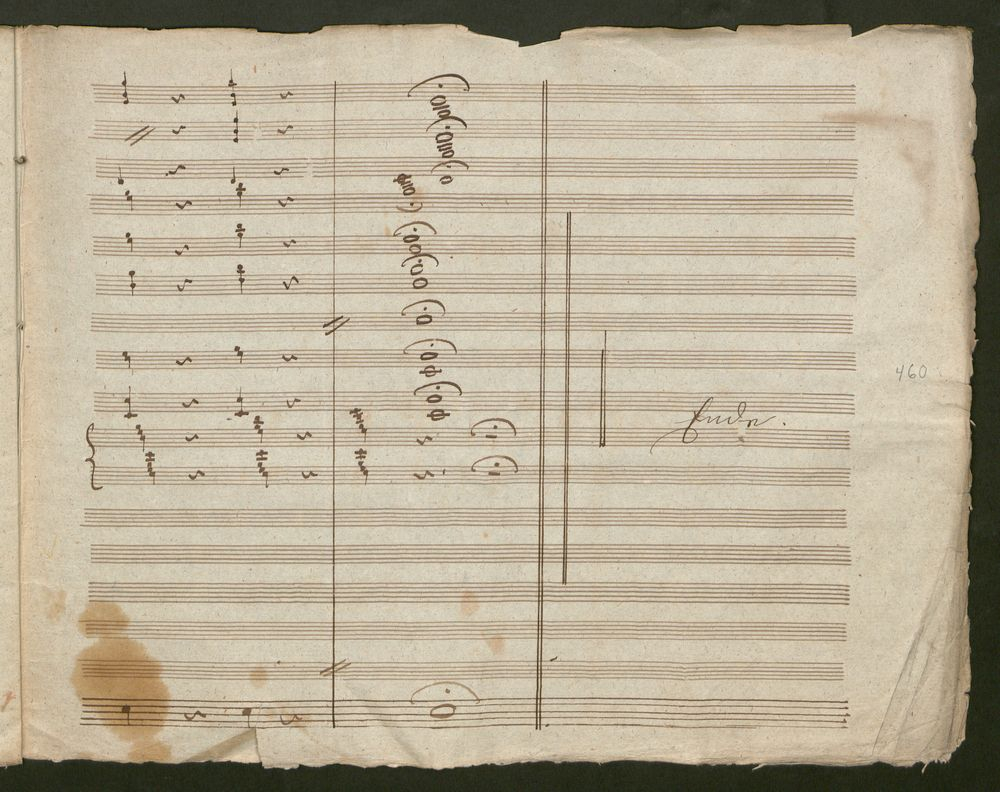 460
Ende.